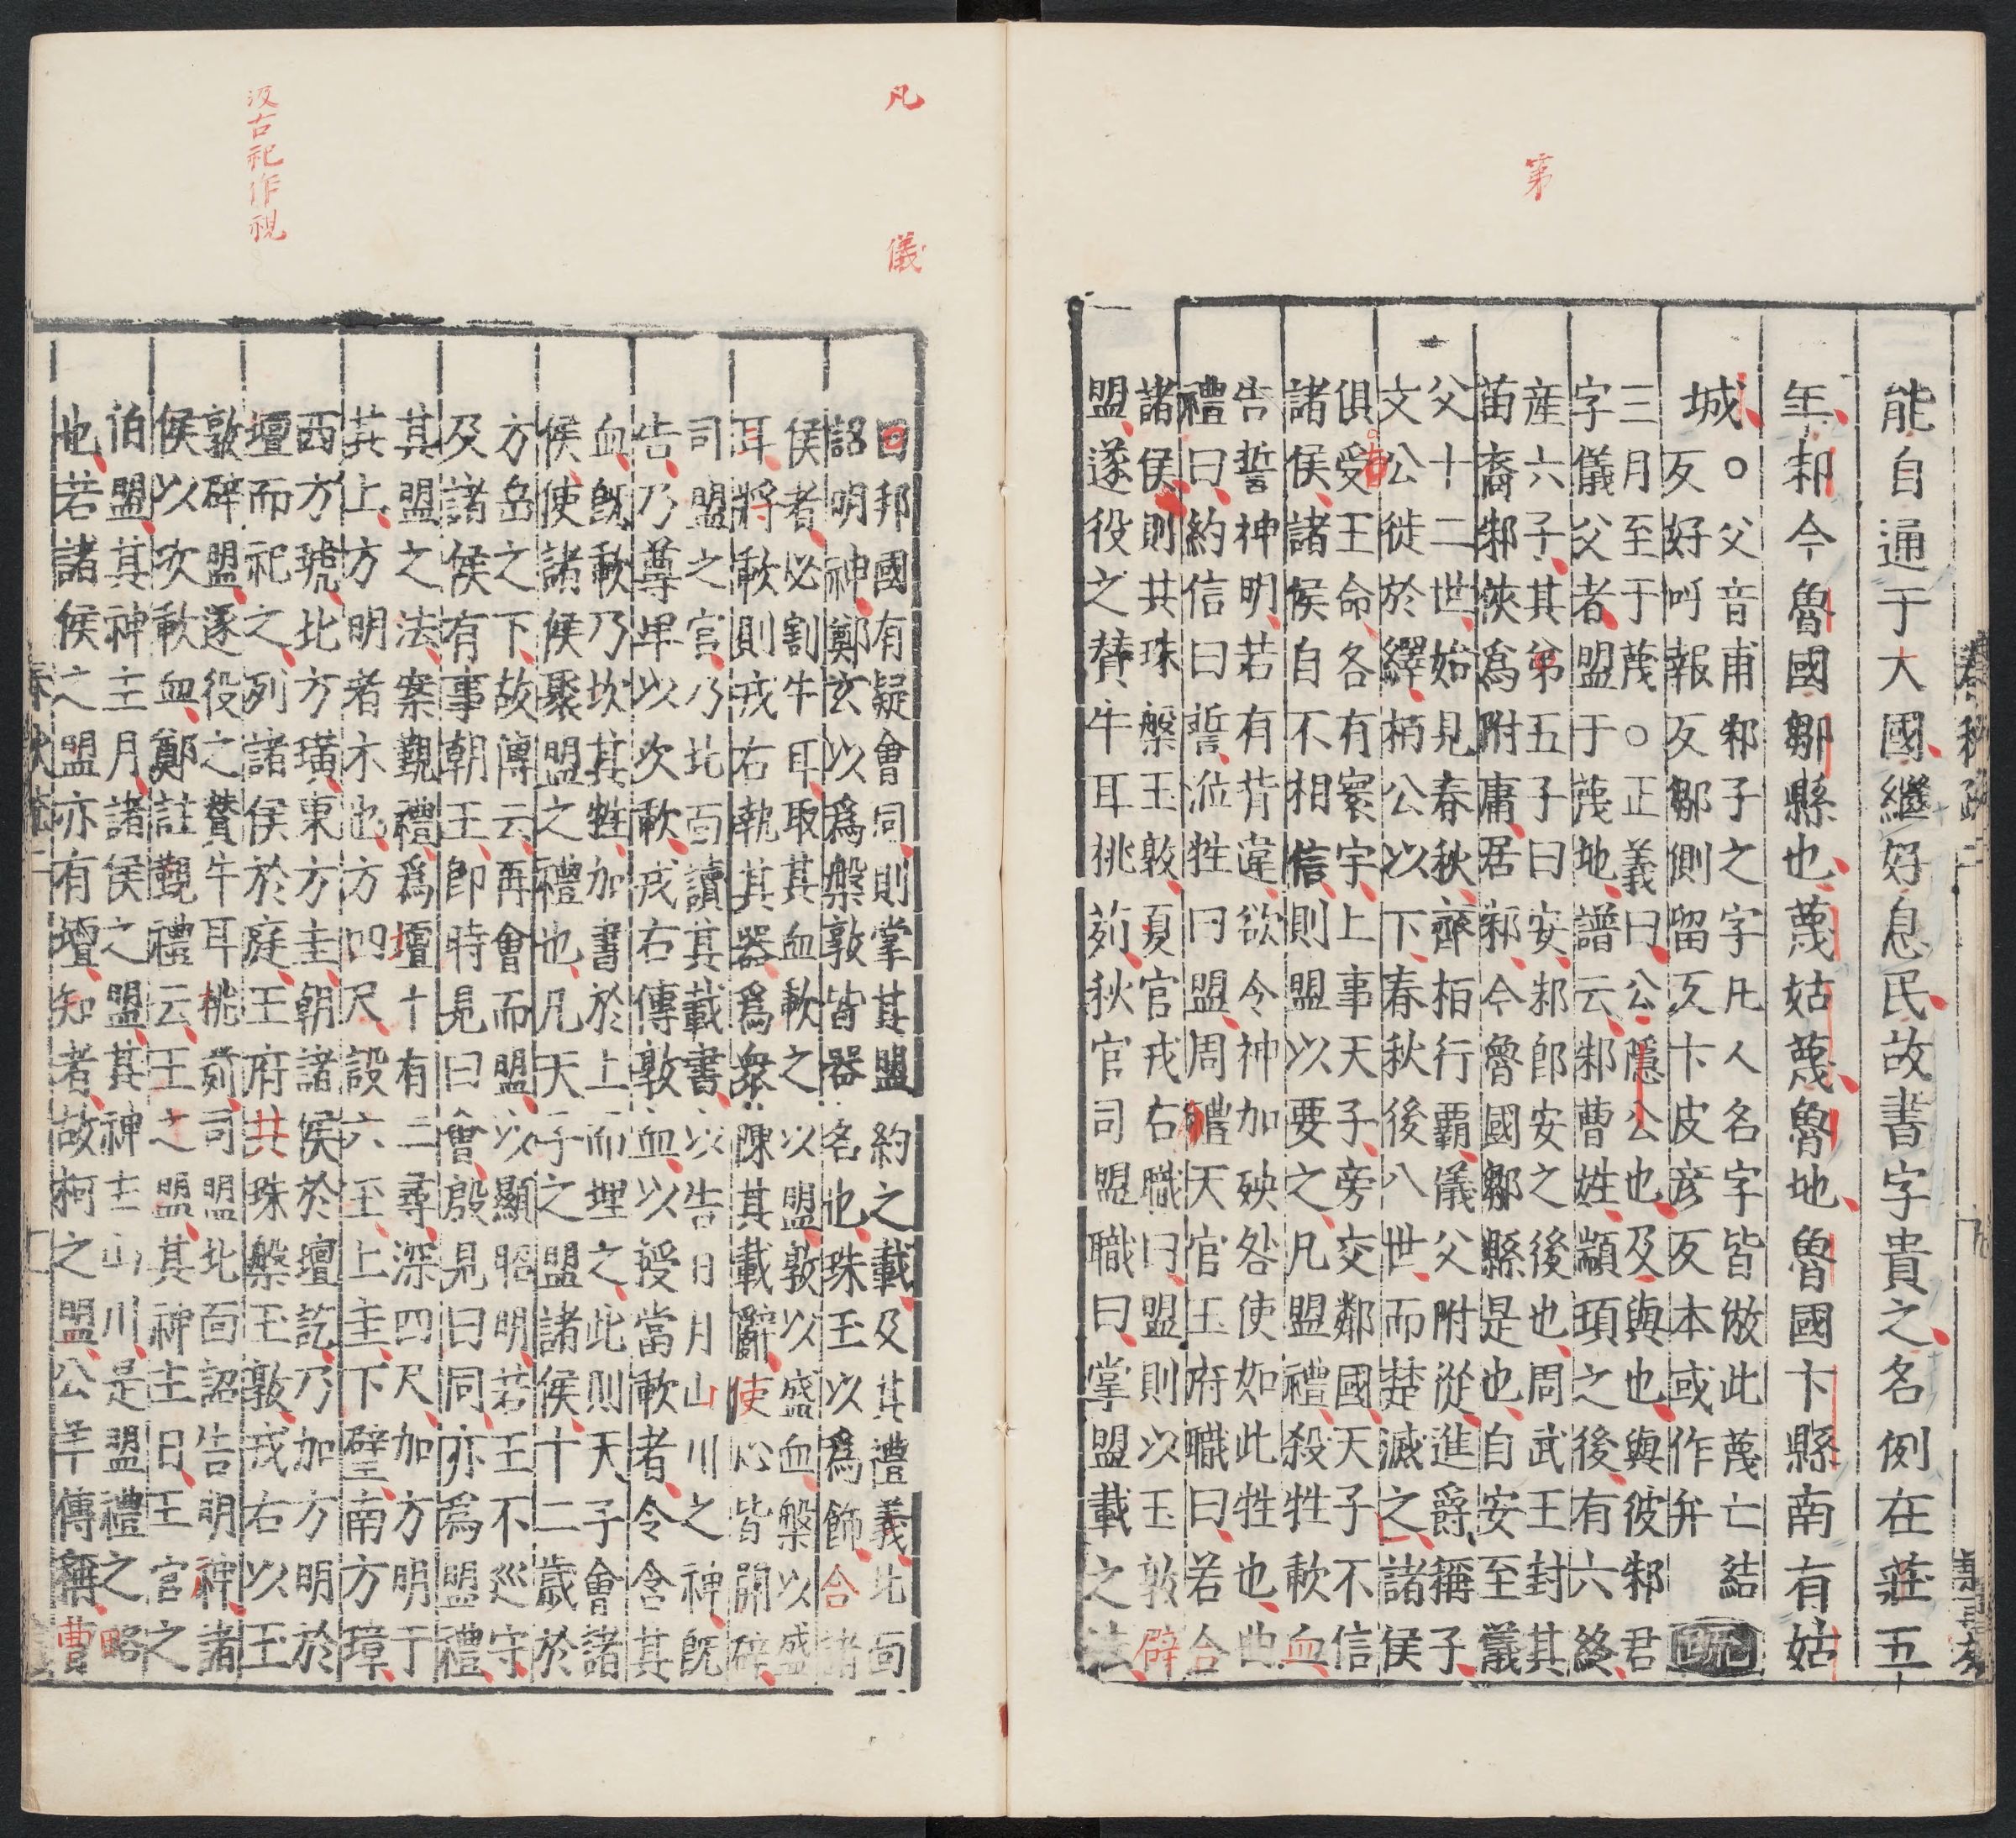 第
能自通于大國繼好息民故書字貴之名例在莊五
年邾今魯國鄒縣也蔑姑蔑魯地魯國卞縣南有姑
城○父音甫邾子之字凡人名字皆倣此蔑亡結
反好呼報反鄒側留反卞皮彦反本或作弁 疏
三月至于蔑○正義曰公隱公也及與也與彼邾君
字儀父者盟于蔑地譜云邾曹姓顓頊之後有六終
産六子其第五子曰安邾即安之後也周武王封其
苗裔邾俠爲附庸居邾今魯國鄒縣是也自安至儀
父十二世始見春秋齊栢行霸儀父附從進爵稱子
文公徙於繹桓公以下春秋後八世而楚滅之諸侯
俱受王命各有寰宇上事天子旁交鄰國天子不信
諸侯諸侯自不相信則盟以要之凡盟禮殺牲歃血
告誓神明若有背違欲令神加殃咎使如此牲也曲
禮曰約信曰誓涖牲曰盟周禮天官玉府職曰若合
諸侯則共珠槃玉敦夏官戎右職曰盟則以玉敦辟
盟遂役之賛牛耳桃茢秋官司盟職曰掌盟載之法
凡 儀
汲古祀作視
曰邦國有疑會同則掌其盟約之載及其禮義北面
詔明神鄭玄以爲槃敦皆器名也珠玉以爲飾合諸
侯者必割牛耳取其血歃之以盟敦以盛血槃以盛
耳將歃則戎右執其器爲衆陳其載辭使心皆開辟
司盟之官乃北面讀其載書以告日月山川之神既
告乃尊卑以次歃戎右傳敦血以授當歃者令含其
血既歃乃坎其牲加書於上而埋之此則天子會諸
侯使諸侯聚盟之禮也凡天子之盟諸侯十二歲於
方岳之下故傳云再會而盟以顯昭明若王不巡守
及諸侯有事朝王即時見曰會殷見曰同亦爲盟禮
其盟之法案覲禮爲壇十有二尋深四尺加方明于
其上方明者木也方四尺設六玉上圭下璧南方璋
西方琥北方璜東方圭朝諸侯於壇訖乃加方明於
壇而祀之列諸侯於庭王府共珠槃玉敦戎右以玉
敦辟盟遂役之賛牛耳桃茢司盟北面詔告明神諸
侯以次歃血鄭註覲禮云王之盟其神主日王官之
伯盟其神主月諸侯之盟其神主山川是盟禮之略
也若諸侯之盟亦有壇知者故柯之盟公羊傳稱曹